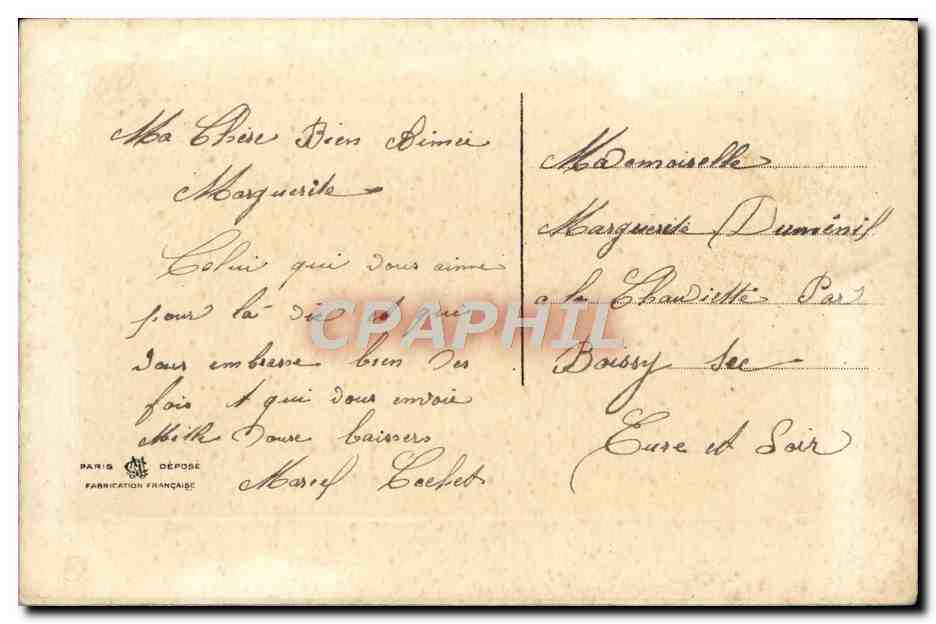 Ma Chère Bien Aimée
Marguerite
Celui qui vous aime
pour la vie et qui
vous embrasse bien des
fois & qui vous envoie
Mille doux baissers
Marcel Cochet
PARIS DÉPOSÉ
FABRICATION FRANÇAISE
Mademoiselle
Marguerite Duménil
a la Chaudietté Par
Boissy Sec
Eure et Loir
CPAPHIL